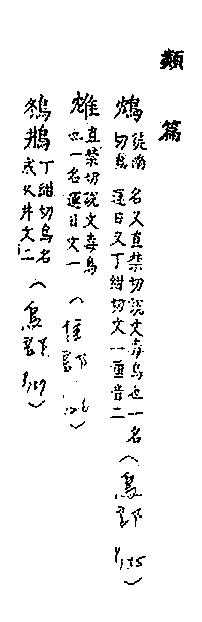 類篇
鴆 徒南切鳥名又直禁切說文毒鳥也一名運日又丁紺切文一重音二（鳥部
直禁切說文毒鳥也一名運日文一（隹部
丁紺切鳥名或从井文二（鳥部